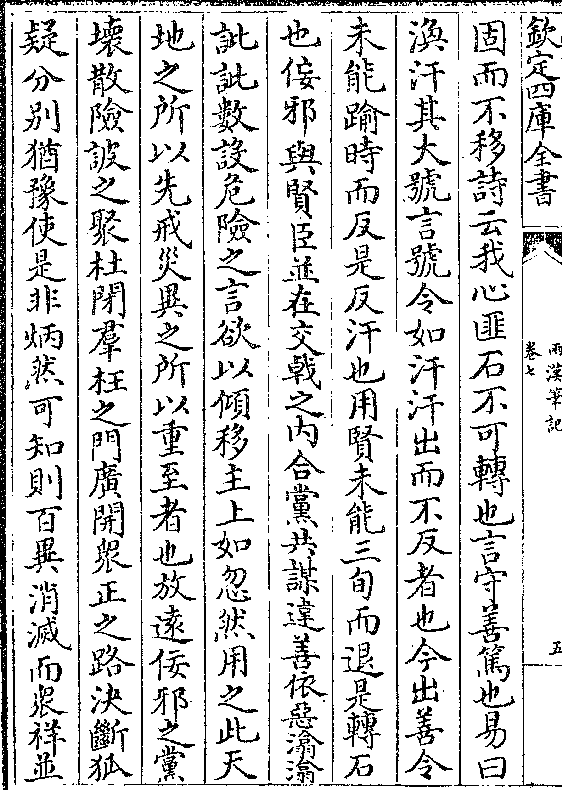 欽定四庫全書
兩漢筆記
卷七
五
固而不移詩云我心匪石不可轉也言守善篤也易曰
渙汗其大號言號令如汗汗出而不反者也今出善令
未能踰時而反是反汗也用賢未能三旬而退是轉石
也佞邪與賢臣並在交戟之內合黨共謀違善依惡滃滃
訿訿數設危險之言欲以傾移主上如忽然用之此天
地之所以先戒災異之所以重至者也放遠佞邪之黨
壞散險詖之聚杜閉羣枉之門廣開衆正之路決斷狐
疑分別猶豫使是非炳然可知則百異消滅而衆祥並